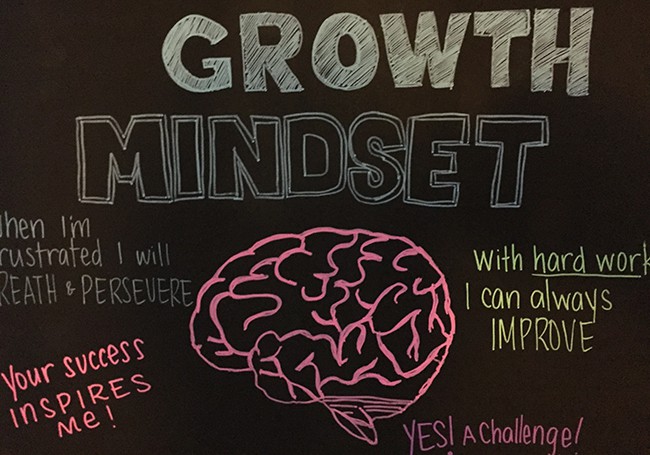 GROWTH
MINDSET
When I'm
frustrated I will
BREATH & PERSEVERE
With hard work
I can always
IMPROVE
Your success
INSPIRES
me!
YES! A Challenge!